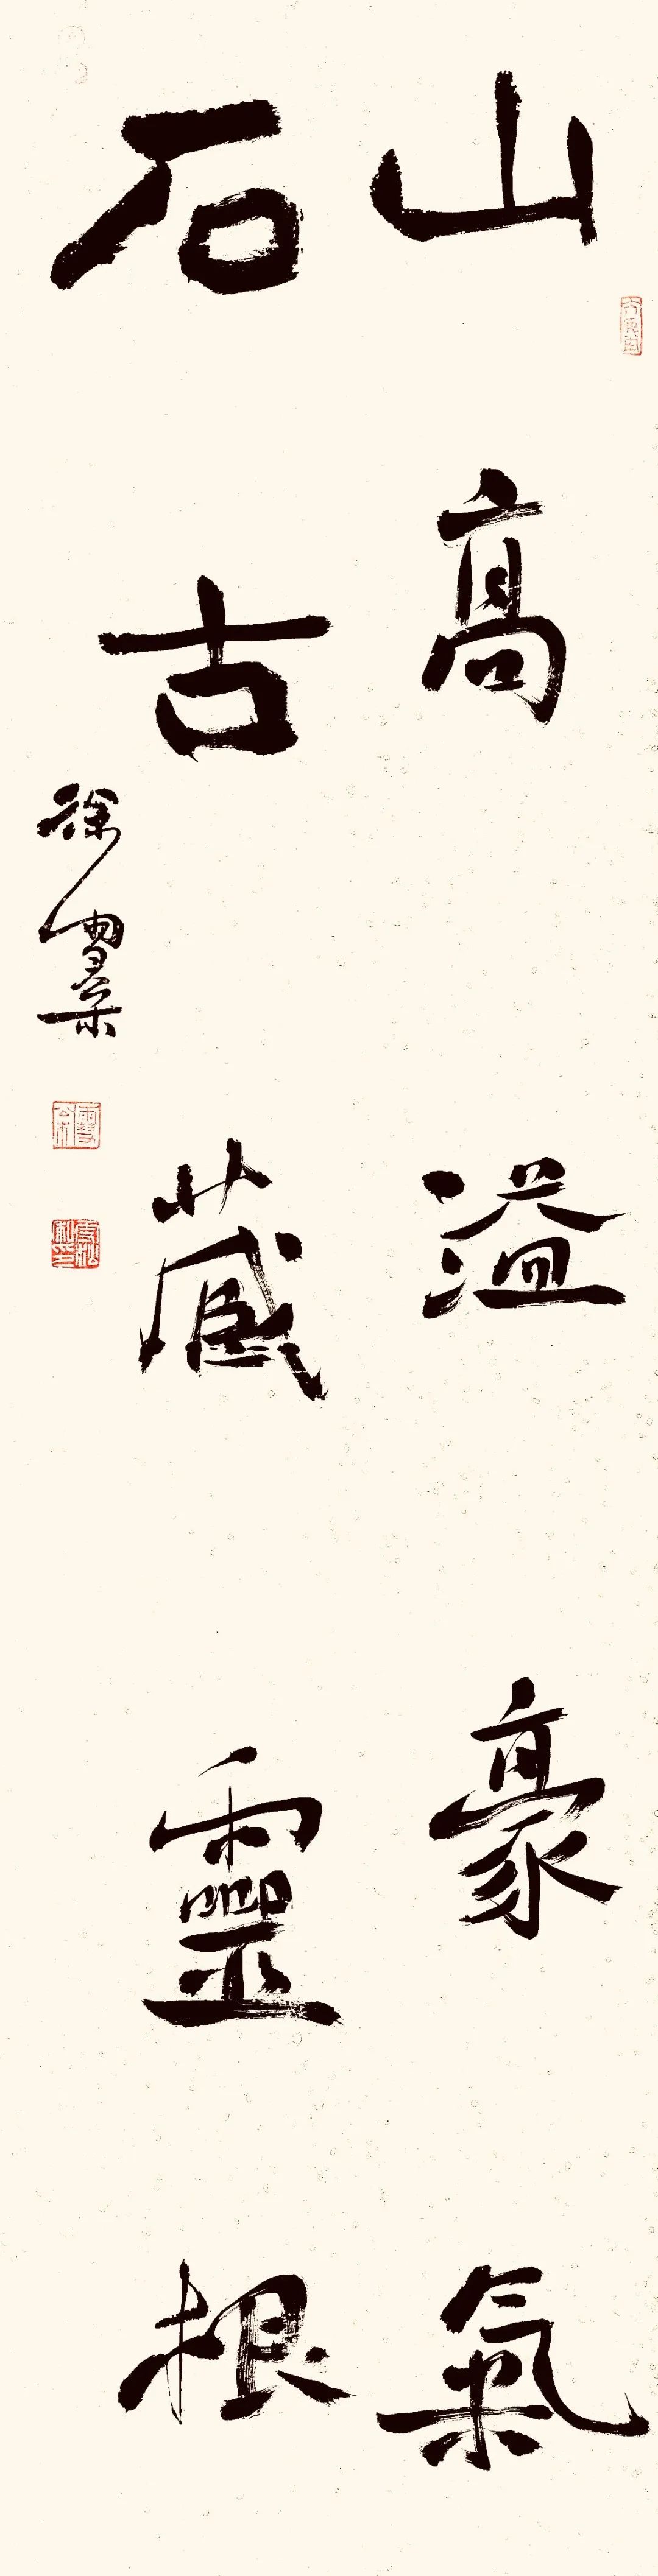 山高溢豪氣
石古藏靈根
徐